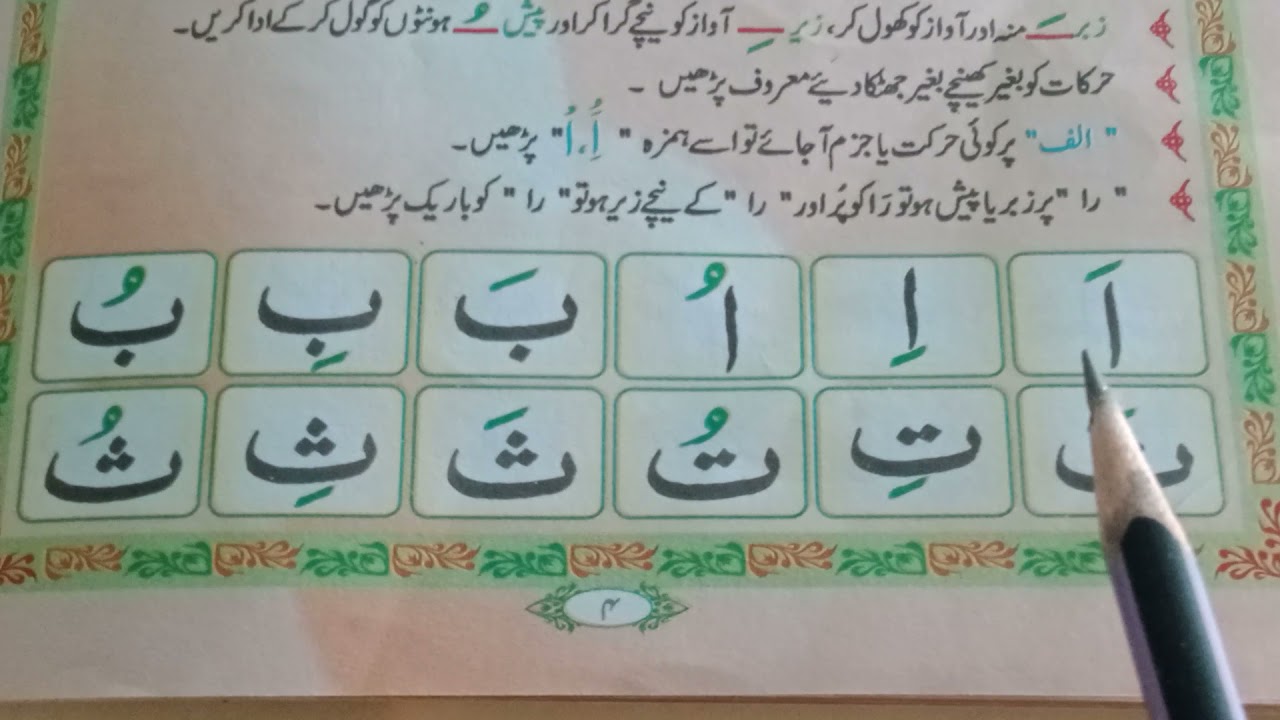 زبر ـَـ منہ اور آواز کو کھول کر، زیر ـِـ آواز کو نیچے گرا کر اور پیش ـُـ ہونٹوں کو گول کر کے ادا کریں۔
حرکات کو بغیر کھینچے بغیر جھٹکا دیئے معروف پڑھیں ۔
" الف " پر کوئی حرکت یا جزم آجائے تو اسے ہمزہ " " پڑھیں۔
" را " پر زبر یا پیش ہو تو رَا کو پُر اور " را " کے نیچے زیر ہو تو " را " کو باریک پڑھیں۔
اَ اِ اُ بَ بِ بُ
تَ تِ تُ ثَ ثِ ثُ
۴